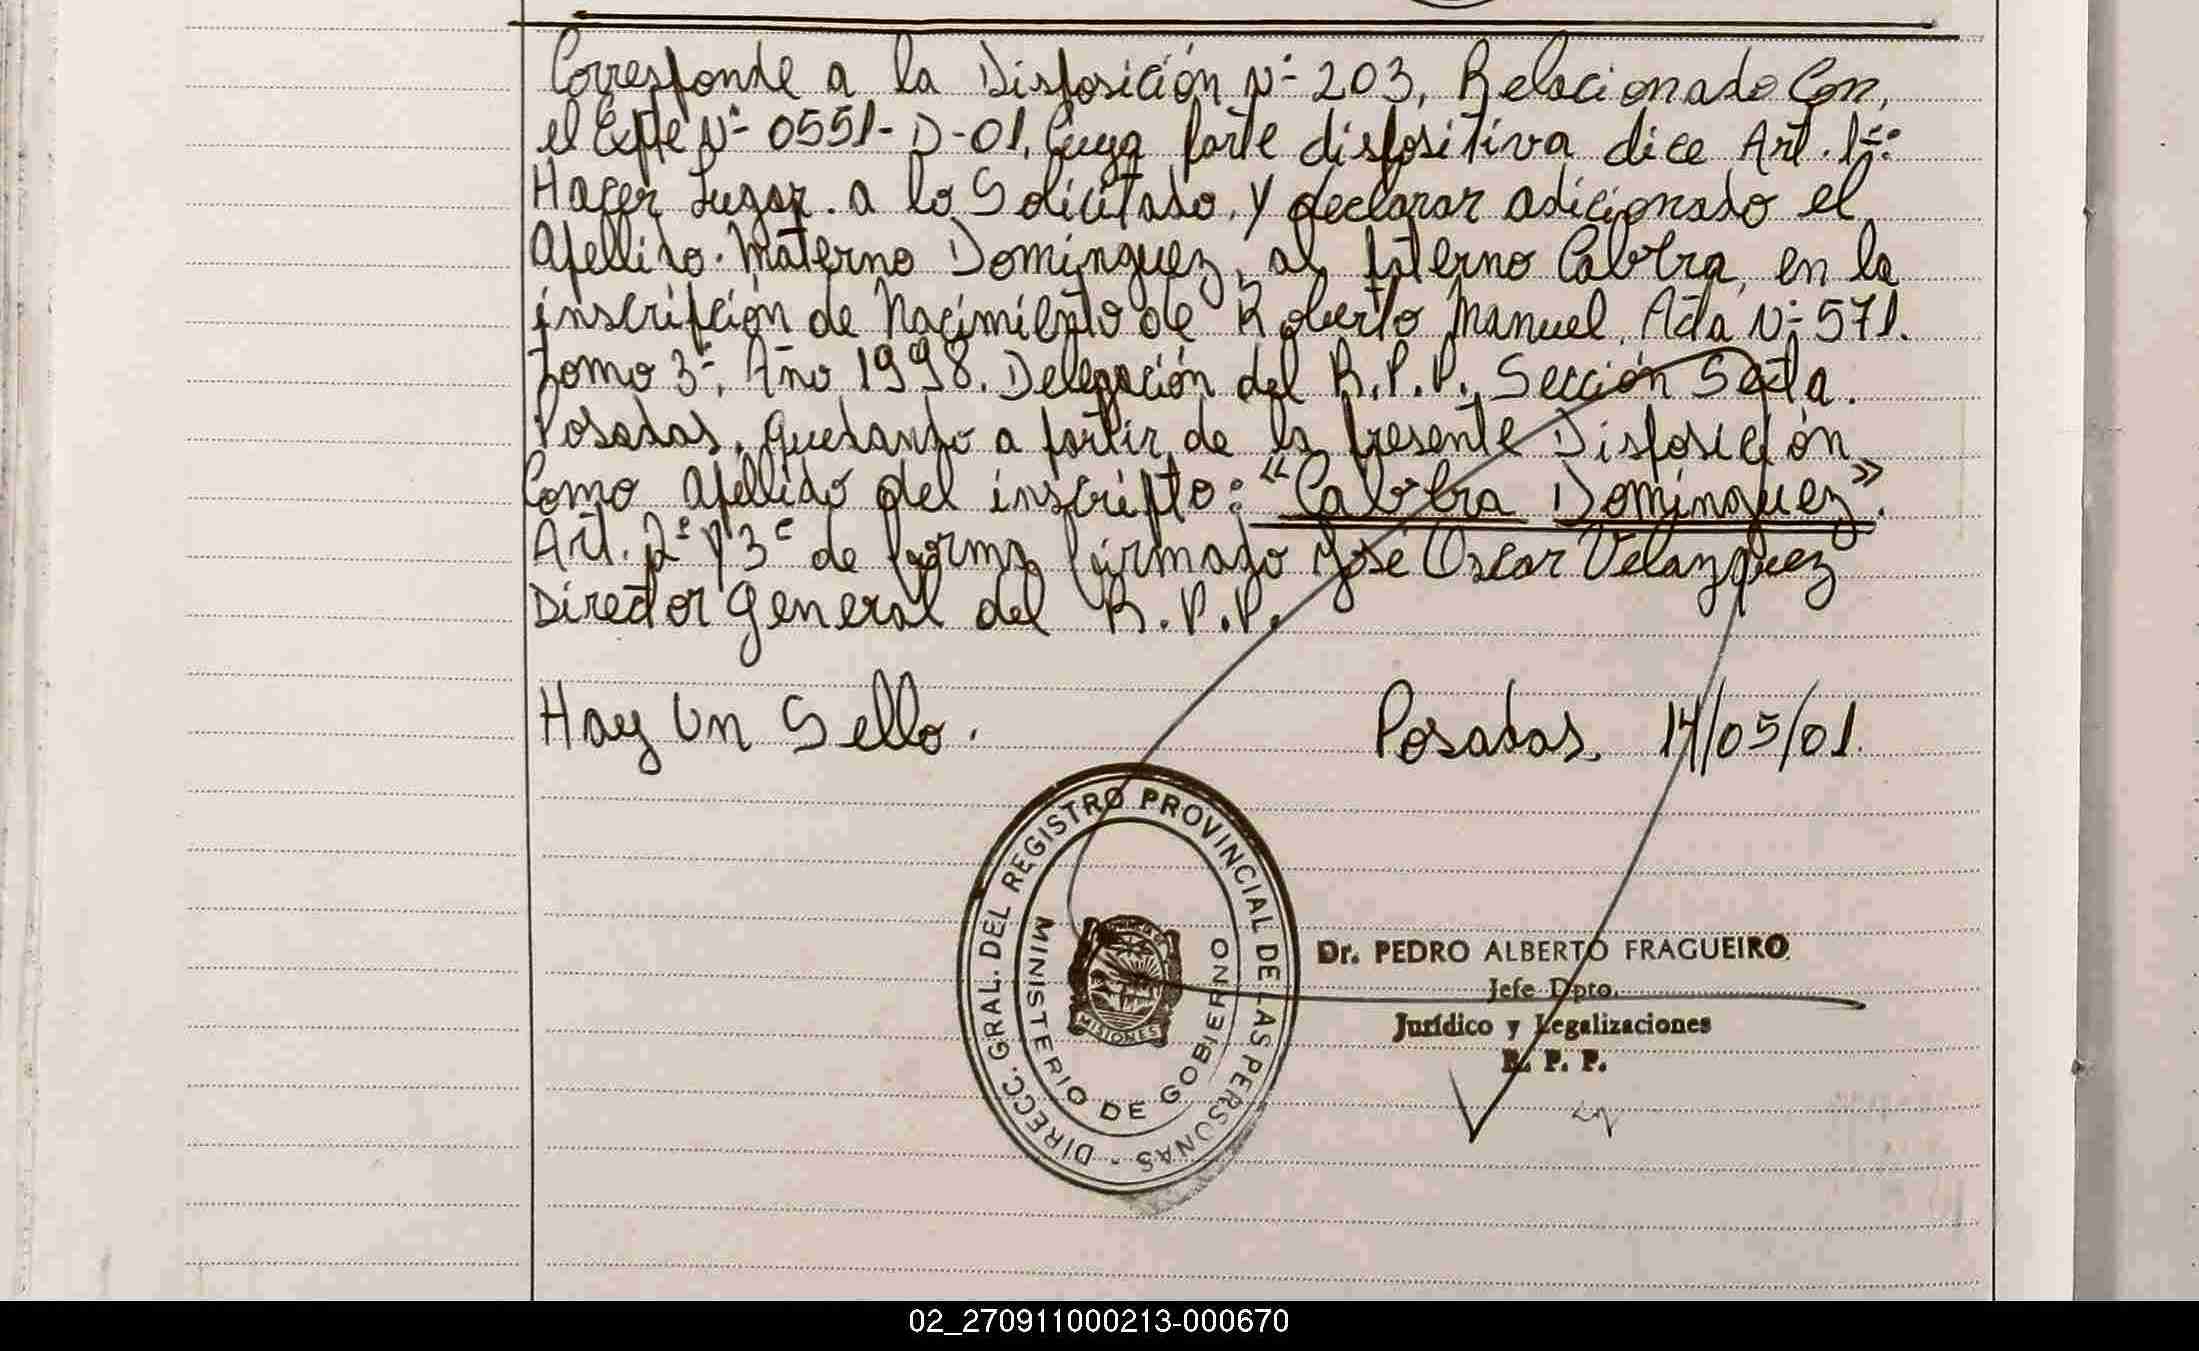 Corresponde a la Disposición Nº 203, Relacionado Con,
el Expte Nº 0551-D-01, Cuya parte dispositiva dice Art. 1º:
Hacer Lugar. a lo Solicitado, y declarar adicionado el
Apellido Materno Dominguez, al paterno Cabrera, en la
inscripción de Nacimiento de Roberto Manuel, Acta Nº 571.
Tomo 3º, Año 1998. Delegación del R.P.P. Sección Sexta.
Posadas, quedando a partir de la presente Disposición
Como apellido del inscripto: "Cabrera Dominguez".
Art. 2º y 3º de forma firmado José Oscar Velazquez
Director General del R.P.P.
Hay Un Sello. Posadas, 14/05/01.
DIRECC. GRAL. DEL REGISTRO PROVINCIAL DE LAS PERSONAS -
MINISTERIO DE GOBIERNO
MISIONES
Dr. PEDRO ALBERTO FRAGUEIRO
Jefe Dpto.
Jurídico y Legalizaciones
R. P. P.
02_270911000213-000670